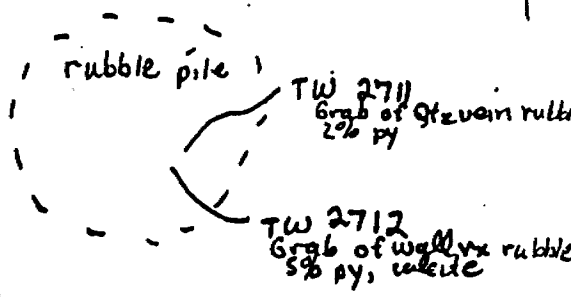 rubble pile
TW 2711
Grab of Qtz vein rubb
2% py
TW 2712
Grab of wall rx rubble
5% py, calcite